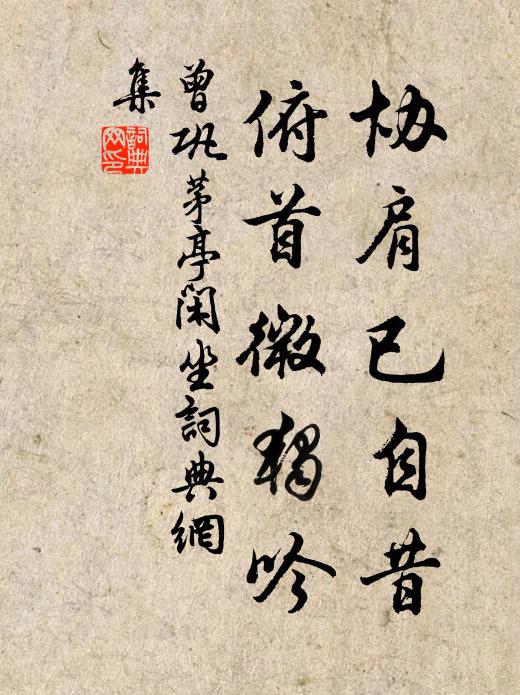 协肩已自昔
俯首微独吟
曾巩茅亭閑坐詞典網
集
詞典
网印